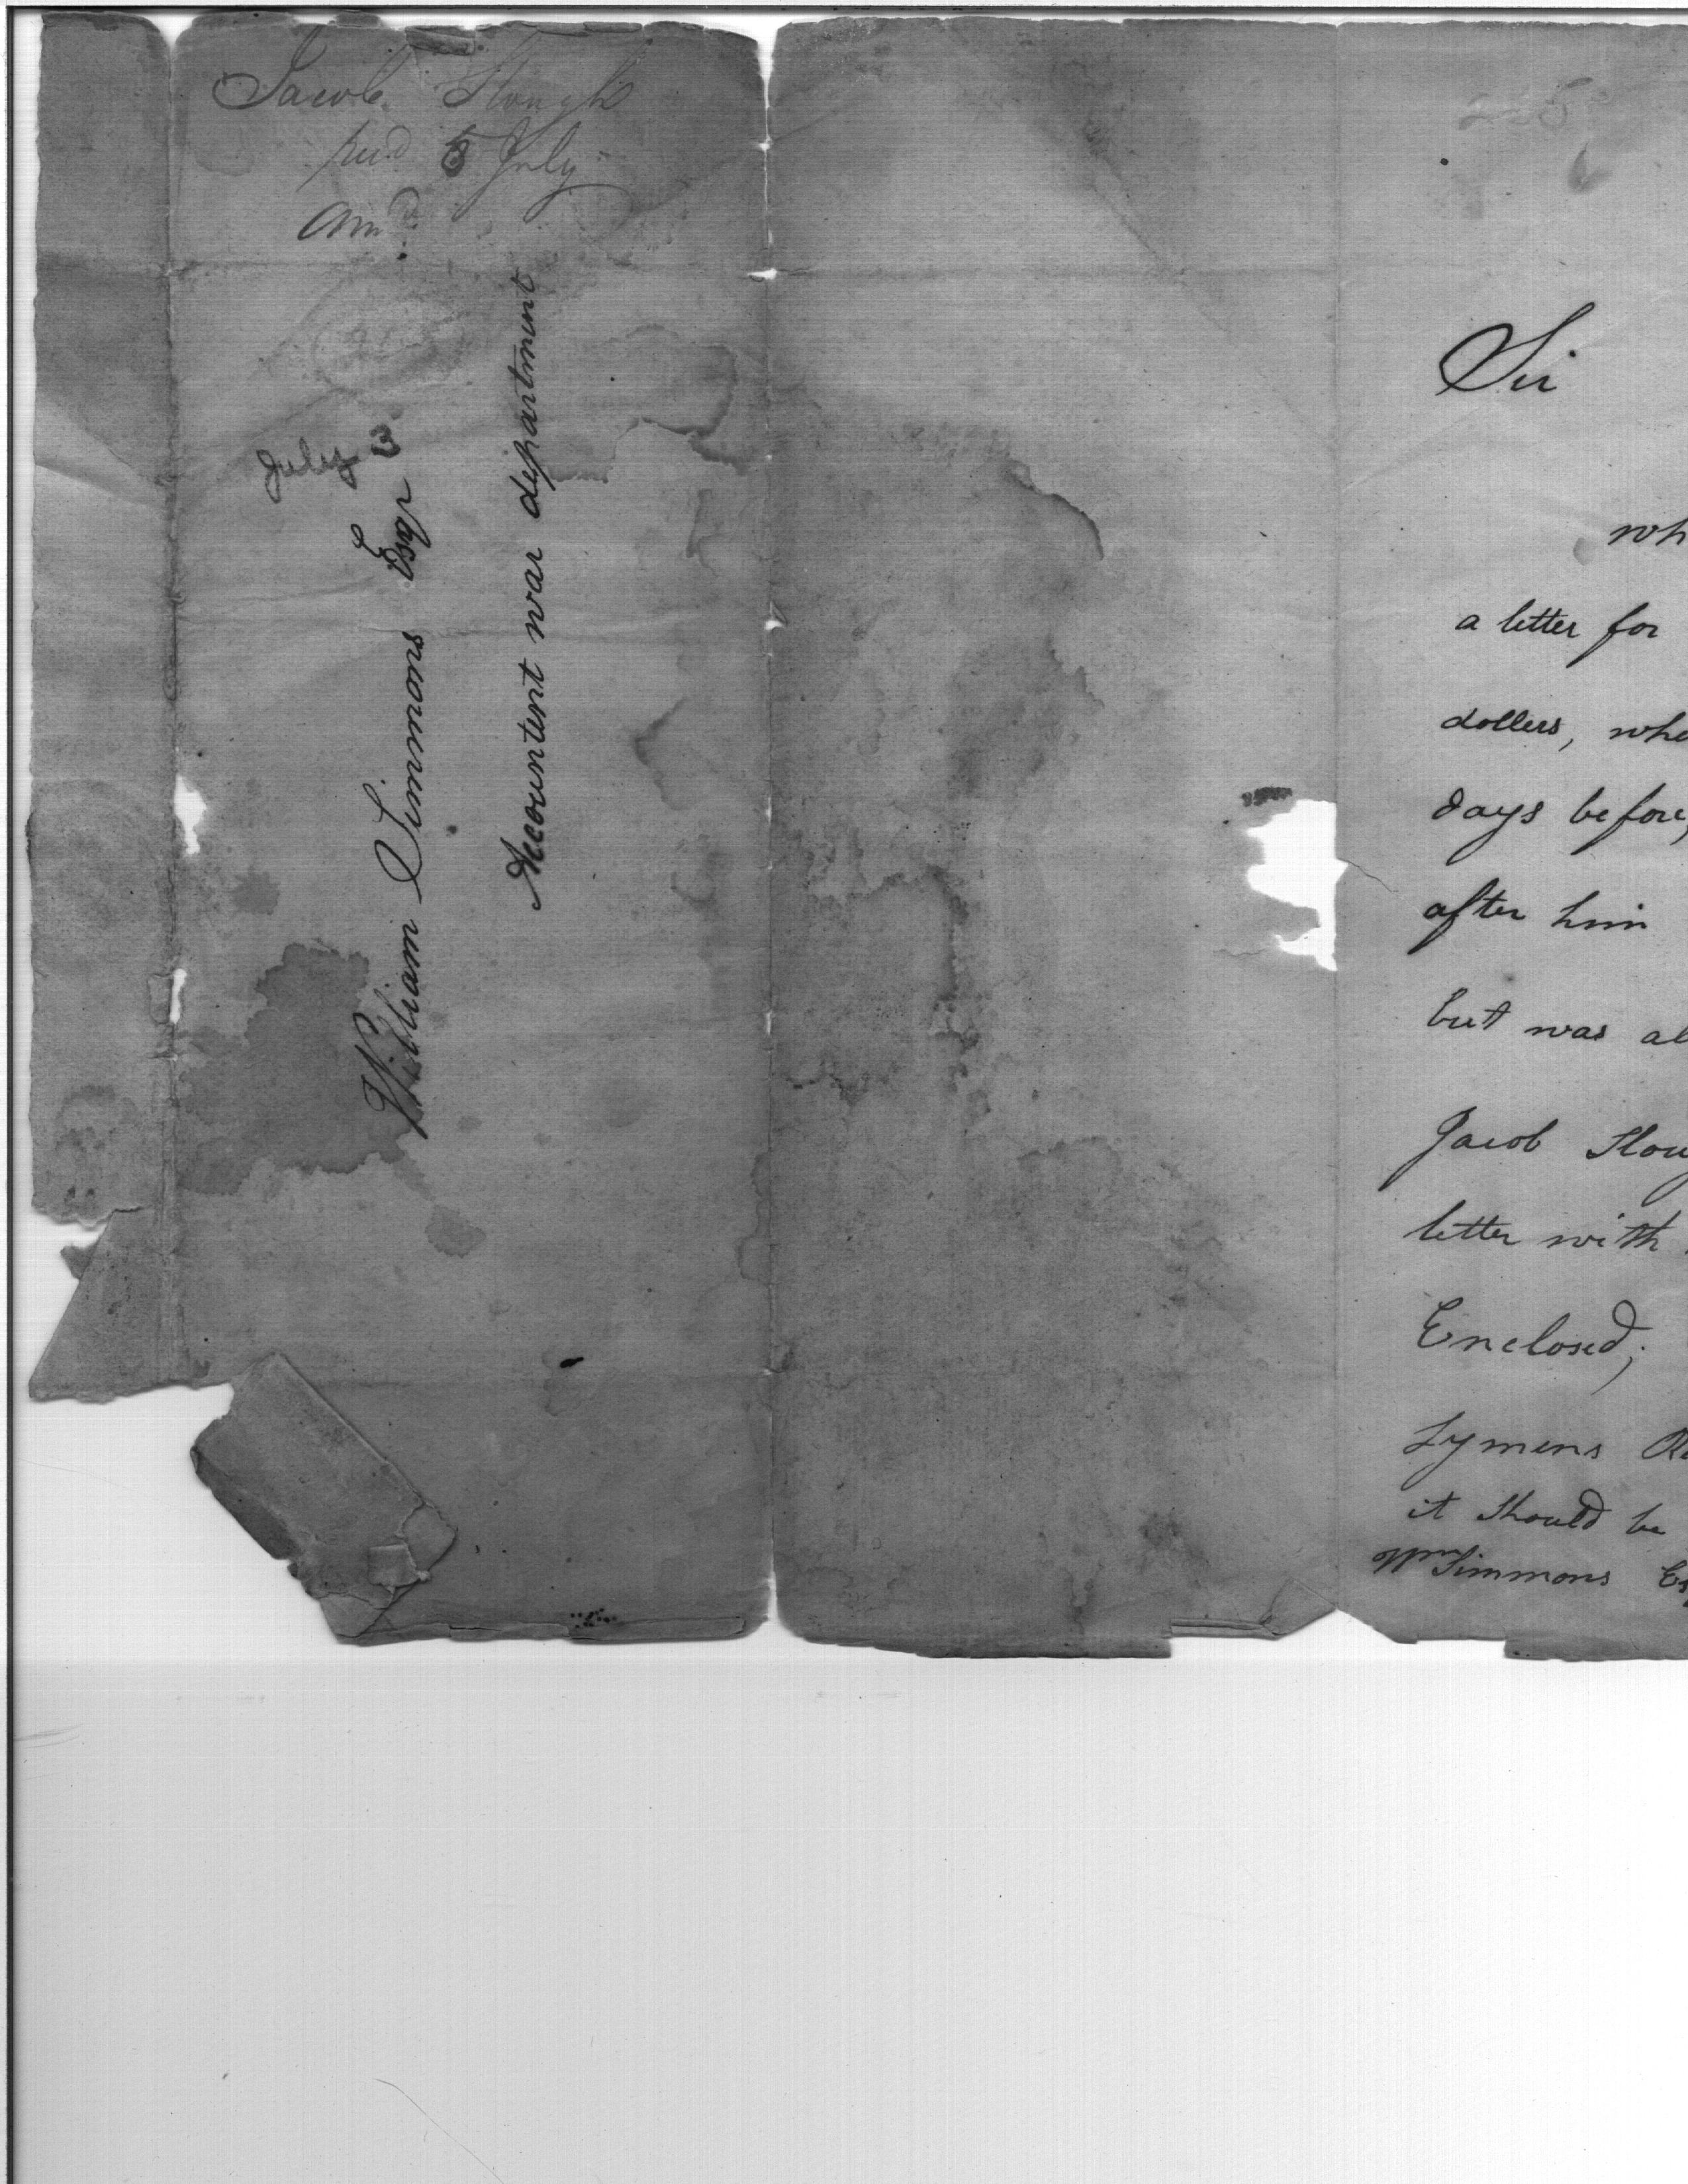 Jacob Slough
recd 3 July
Ansd
July 3
William Simmons Esqr
Accountent war department
Sir
wh
a letter for
dollers, whe
days before,
after him
but was al
Jacob Slou
letter with
Enclosed;
Lymens Re
it Should be
Wm Simmons Es